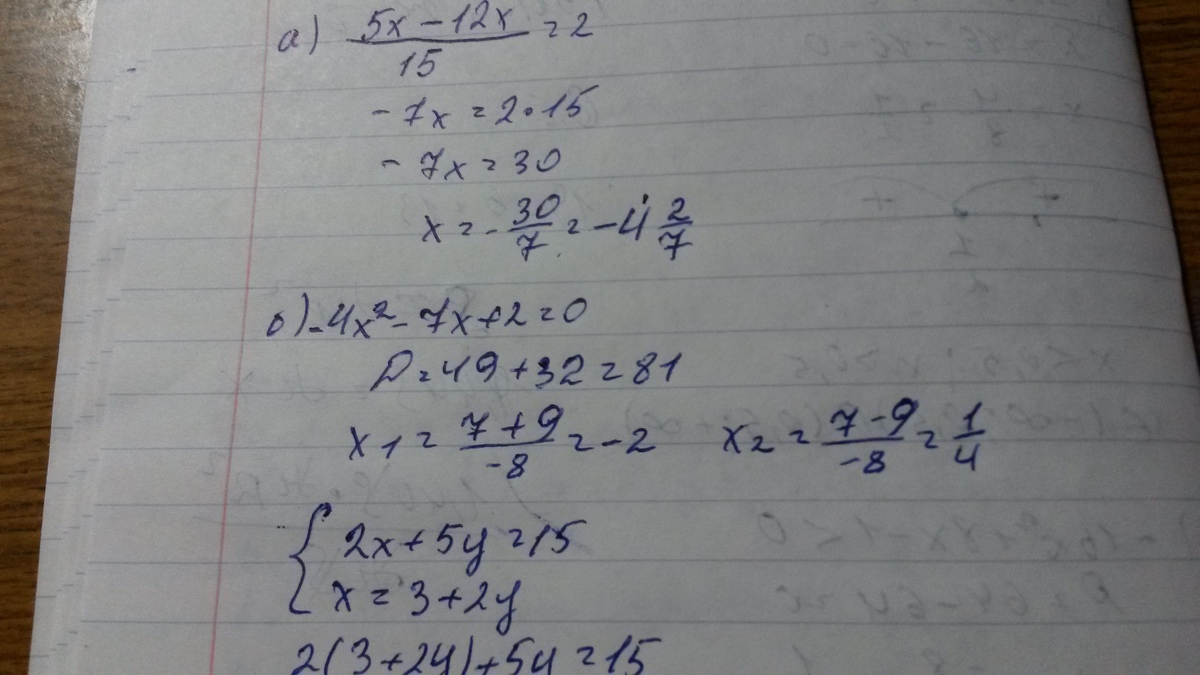 а) (5x - 12x)/15 = 2
- 7x = 2 · 15
- 7x = 30
x = - 30/7 = - 4 2/7
б) - 4x² - 7x + 2 = 0
D = 49 + 32 = 81
x1 = (7 + 9)/-8 = - 2 x2 = (7 - 9)/-8 = 1/4
{ 2x + 5y = 15
x = 3 + 2y
2(3 + 2y) + 5y = 15